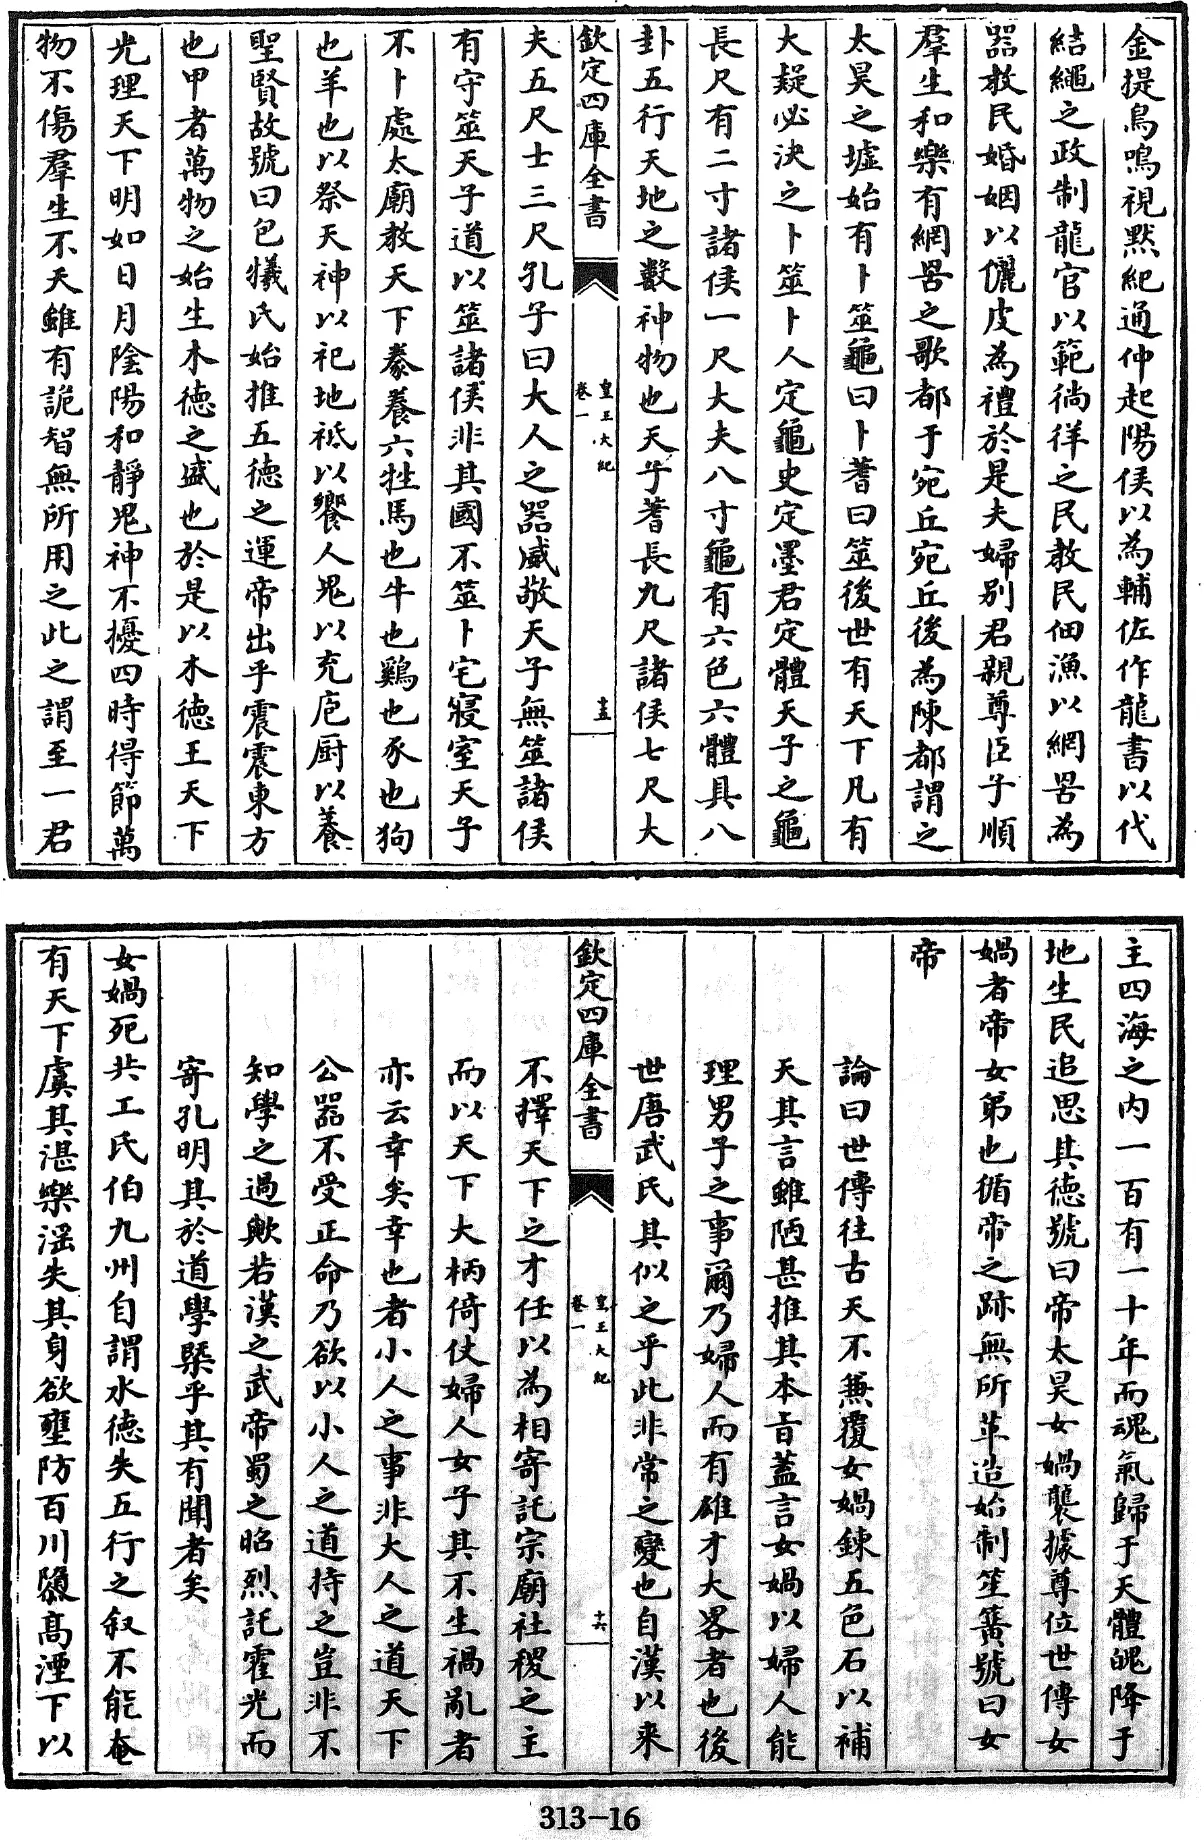 金提鳥鳴視黙紀通仲起陽侯以為輔佐作龍書以代
結繩之政制龍官以範徜徉之民教民佃漁以網罟為
器教民婚姻以儷皮為禮於是夫婦别君親尊臣子順
羣生和樂有網罟之歌都于宛丘宛丘後為陳都謂之
太昊之墟始有卜筮龜曰卜蓍曰筮後世有天下凡有
大疑必決之卜筮卜人定龜史定墨君定體天子之龜
長尺有二寸諸侯一尺大夫八寸龜有六色六體具八
卦五行天地之數神物也天子蓍長九尺諸侯七尺大
欽定四庫全書
皇王大紀
卷一
十五
夫五尺士三尺孔子曰大人之器威敬天子無筮諸侯
有守筮天子道以筮諸侯非其國不筮卜宅寢室天子
不卜處太廟教天下豢養六牲馬也牛也鷄也豕也狗
也羊也以祭天神以祀地祗以饗人鬼以充庖厨以養
聖賢故號曰包犧氏始推五德之運帝出乎震震東方
也甲者萬物之始生木德之盛也於是以木德王天下
光理天下明如日月陰陽和靜鬼神不擾四時得節萬
物不傷羣生不夭雖有詭智無所用之此之謂至一君
主四海之内一百有一十年而魂氣歸于天體魄降于
地生民追思其德號曰帝太昊女媧襲據尊位世傳女
媧者帝女弟也循帝之跡無所革造始制笙簧號曰女
帝
論曰世傳往古天不兼覆女媧鍊五色石以補
天其言雖陋甚推其本旨蓋言女媧以婦人能
理男子之事爾乃婦人而有雄才大畧者也後
世唐武氏其似之乎此非常之變也自漢以來
欽定四庫全書
皇王大紀
卷一
十六
不擇天下之才任以為相寄託宗廟社稷之主
而以天下大柄倚仗婦人女子其不生禍亂者
亦云幸矣幸也者小人之事非大人之道天下
公器不受正命乃欲以小人之道持之豈非不
知學之過歟若漢之武帝蜀之昭烈託霍光而
寄孔明其於道學槩乎其有聞者矣
女媧死共工氏伯九州自謂水德失五行之叙不能奄
有天下虞其湛樂滛失其身欲壅防百川隳髙湮下以
313-16